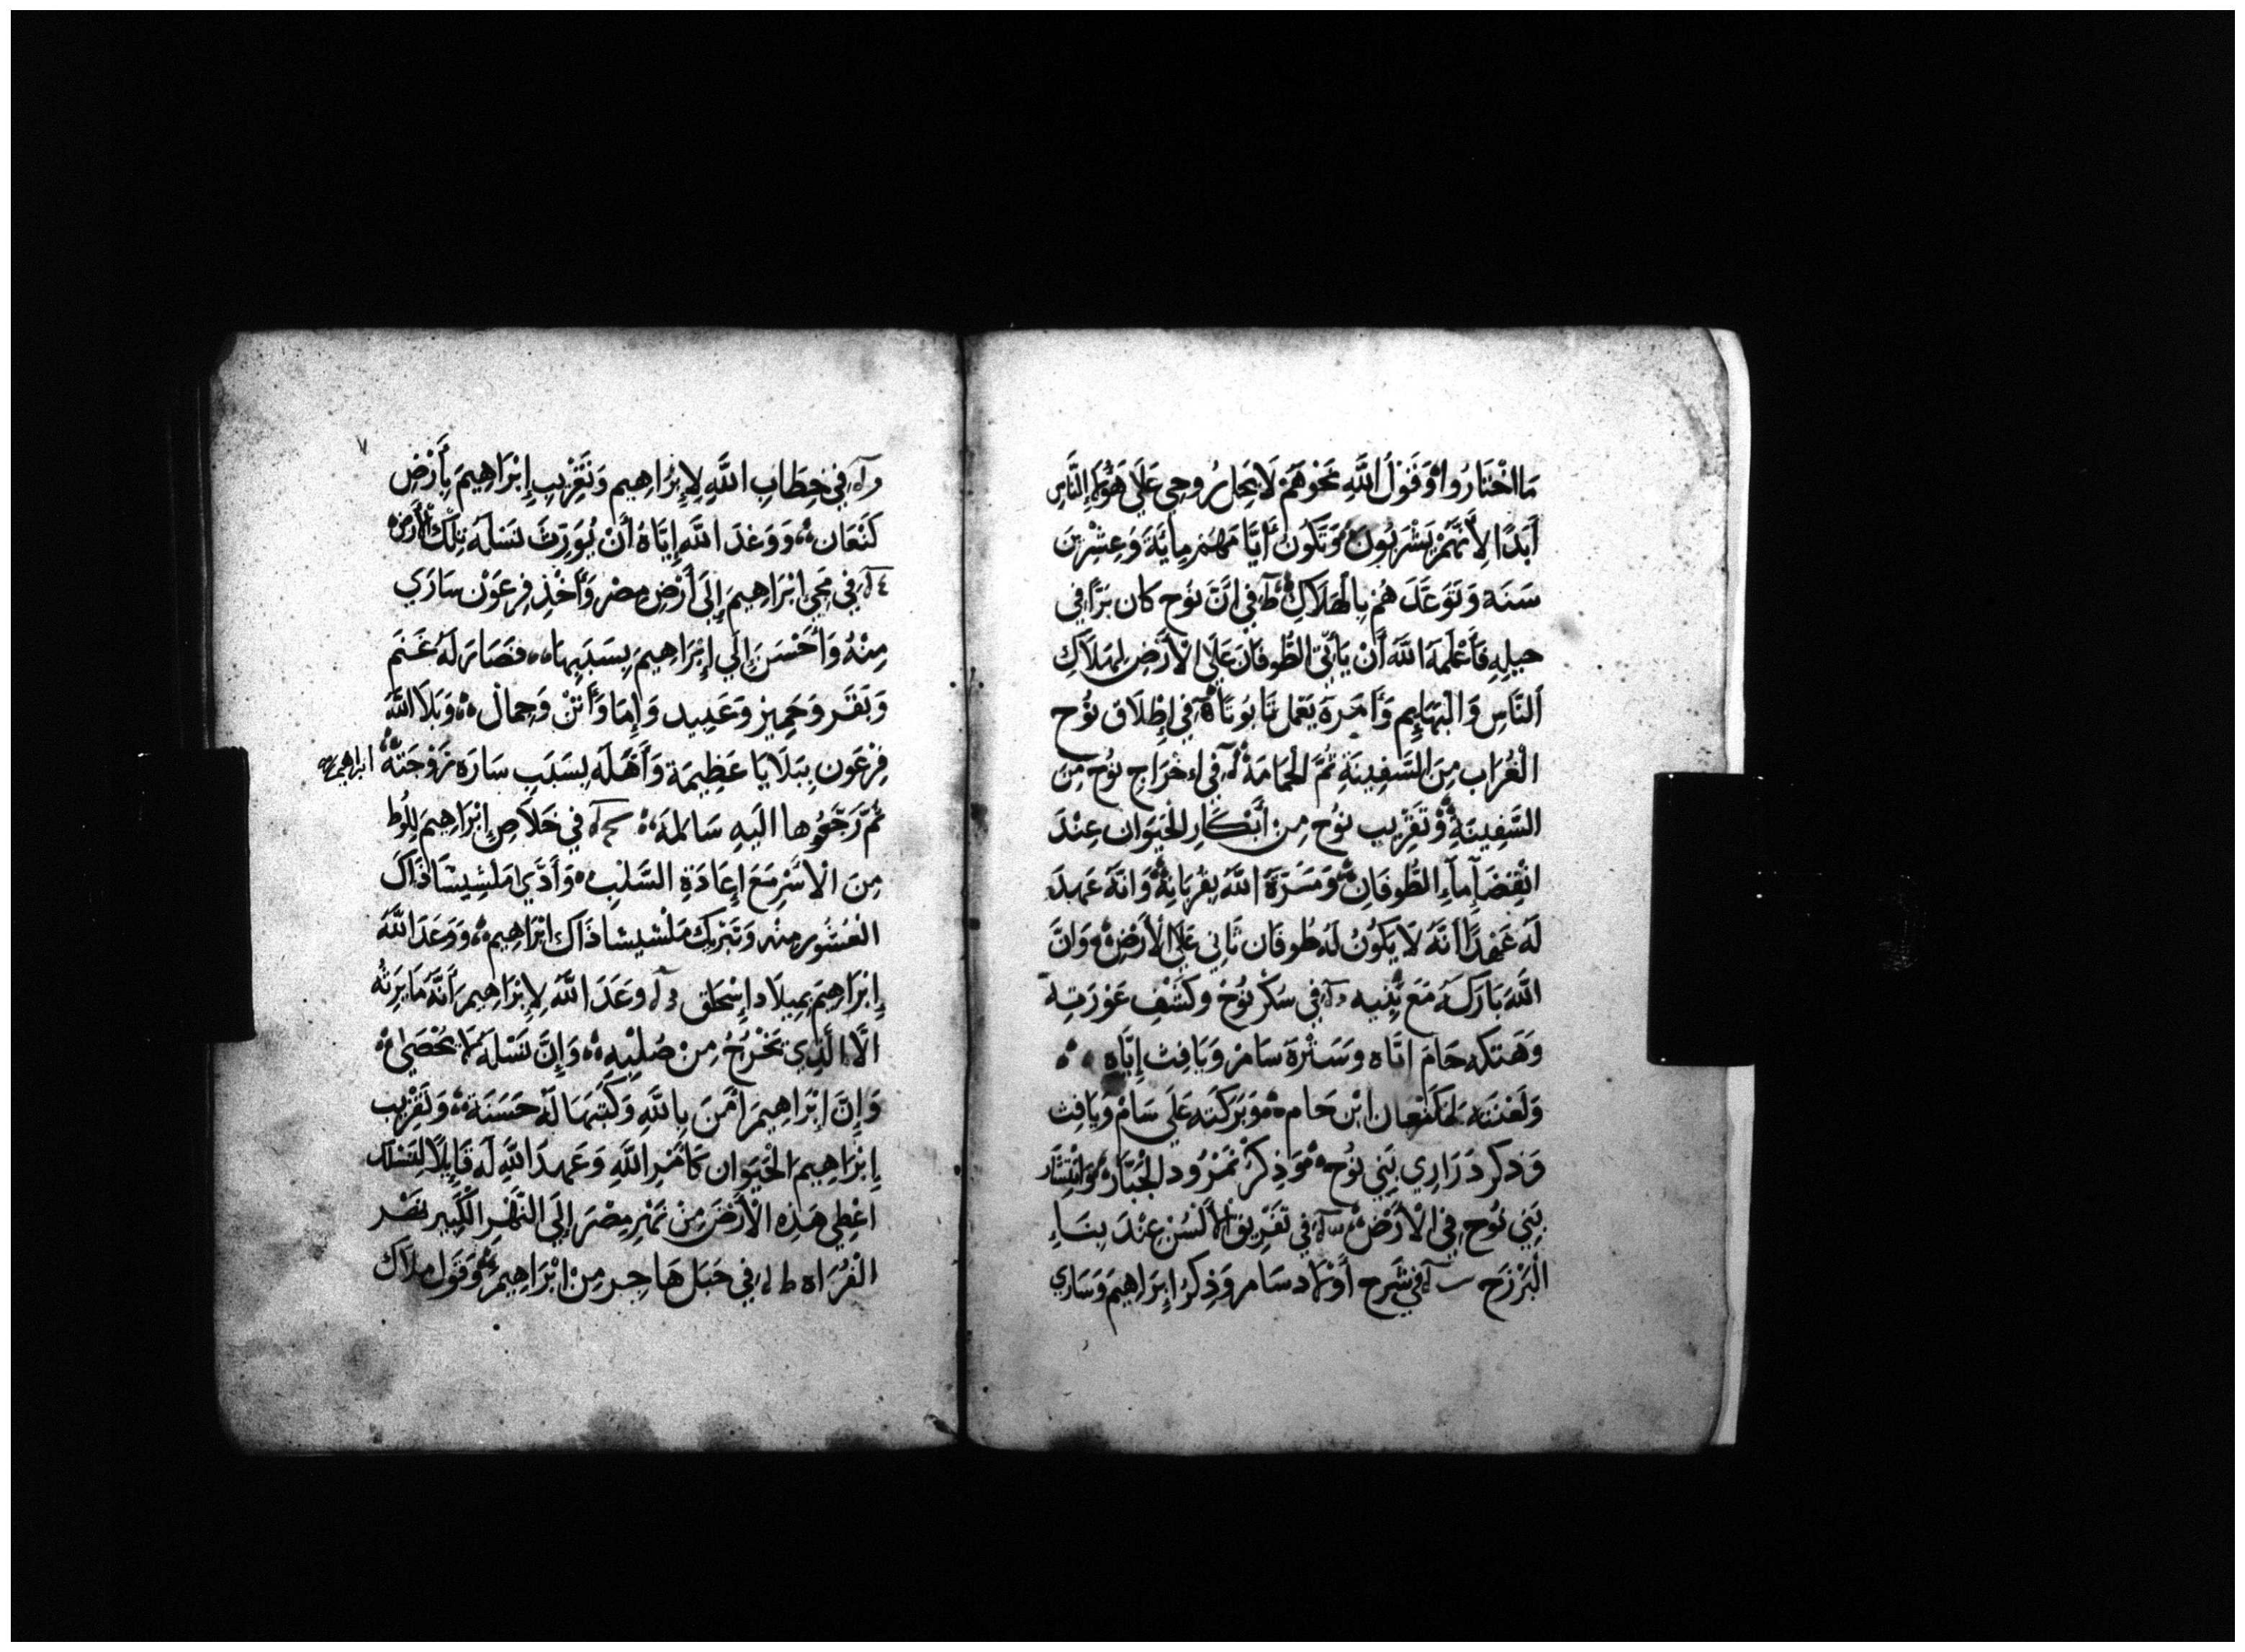 مَا اخْتَارُوا وَقَوْلُ اللَّهِ نَحْوَهُمْ لَا يَحِلُ رُوحِي عَلَي هَؤُلَاءِ النَّاسِ
أَبَدًا لِأَنَّهُمْ بَشَرِيُونَ وَتَكُونُ أَيَّامَهُمْ مِايَةَ وَعِشْرِينَ
سَنَه وَتَوَعَّدَ هُم بِالْهَلَاكِ ط في انَّ نوُح كان بَرًّا في
جيلِهِ فَأَعْلَمَهَ اللَّهَ أَنْ يَأتِي الطُّوفَان عَلَي الْأَرْضِ لِهَلَاكِ
النَّاسِ وَالْبَهَايِم وَأَمَرَهَ بَعْمل تَابُوتًا في إِطْلَاق نوُح
الْغُرَاب مِنَ السَّفِينَةِ ثُمَّ الحْمَامَة في اءخْرَاج نوُح مِنَ
السَّفِينَةِ وَتَقْرِيب نوُح مِنْ أَبْكَارِ الحْيَوَان عِنْدَ
انْقِضَآءِ مآءِ الطُّوفَانِ وَمَسَرَّة اللَّهَ بِقُرْبَانِهُ وَانَّهُ عَهِدَ
لَهُ عَهْدًا انَّهُ لَا يَكُونُ لَهُ طُوفَان ثَانِي عَلَي الْأَرْضِ وَانَّ
اللَّهَ بَارَكَهُ مَعَ بَنِيه في سُكْرِ نوُح وكَشْفِ عَوْرَتِهِ
وَهَتكِه حَامَ ايَّاه وسَتْرهَ سَامْ وَيَافِث إِيَّاه
وَلَعْنَتَه لِكَنْعان ابْن حَام وَبَرَكَته عَلَي سَامْ وَيَافِث
وَذِكر ذرَارِي بَنِي نوُح وَذِكْرُ نَمْرُود الجْبَّار وَانْتِشَار
بَنِي نوُح في الْأَرْض في تَفْرِيق الْأَلْسُن عِنْدَ بِنَاءِ
الْبَرْزَح في شَرح أَوْلَاد سَام وَذِكْرُ إِبرَاهِيمَ وَسَارَي
في خِطَابِ اللَّهِ لِإِبْرَاهِيم وَتَقْرِيبِ إِبْرَاهِيمَ بِأَرْضِ
كَنْعَان وَوَعْدَ اللَّهِ إِيَّاهُ أَنْ يُوَرِثَ نَسْلَهُ تِلْكَ الْأَرض
في مَجِي ابْرَاهِيمَ إِلَى أَرْضِ مِصْر وَأَخْذِ فِرعَوْن سَارَي
مِنْهُ وَأَحْسَنَ إِلَي إِبْرَاهِيمَ بِسَبَبِهَا فَصَارَ لَهُ غَنَم
وَبَقَر وَحَمِير وَعَبِيد وَإِمَا وَأُتْنْ وَجِمال وَبَلَا اللَّهُ
فِرْعَون بِبَلَايَا عَظِيمَة وَأَهْلَه بِسَبَبِ سَارَه زَوْجَتْهُ ابراهيم
ثُمَّ رَجَّعُوها اليَهِ سَالمَه في خَلَاصِ إِبْرَاهِيمَ لِلُوط
مِنَ الْأسْرِ مَعَ إِعَادَةِ السَّلْبِ وَأَدَّي مَلْشِيشَاذَاك
الْعُشُور مِنْه وَتَبْرِيك مَلْشيشاذَاك ابْرَاهِيم وَوَعَدَ اللَّهُ
إِبْرَاهِيمَ بِمِيلَاد إِسْحَاق وعَدَ اللَّهُ لِإِبْرَاهِيم أَنَّهُ مَا يَرِثُه
الَّا الَّذِي يَخْرُجُ مِنْ صُلْبِهِ وَإِنَّ نَسْلَهُ لَا يُحْصَيْ
وَإِنَّ ابْرَاهِيمَ أَمَنَ بِاللَّهِ وَكَتَبَهَا لَهُ حَسَنَة وَتَقْرِيب
إِبْرَاهِيمَ الْحَيَوَان كَأَمْرِ اللَّهِ وَعَهدَ اللَّهِ لَه قَايِلًا لِنَسْلَك
اعْطِي هَذِه الْأَرْضَ مِنْ نَهْرِ مِصْرَ إِلَي النَّهْرِ الْكَبِير نَهْر
الْفُرَاه ط في حَبَل هَاجِر مِنْ ابْرَاهِيمَ وَقَول مَلَاك